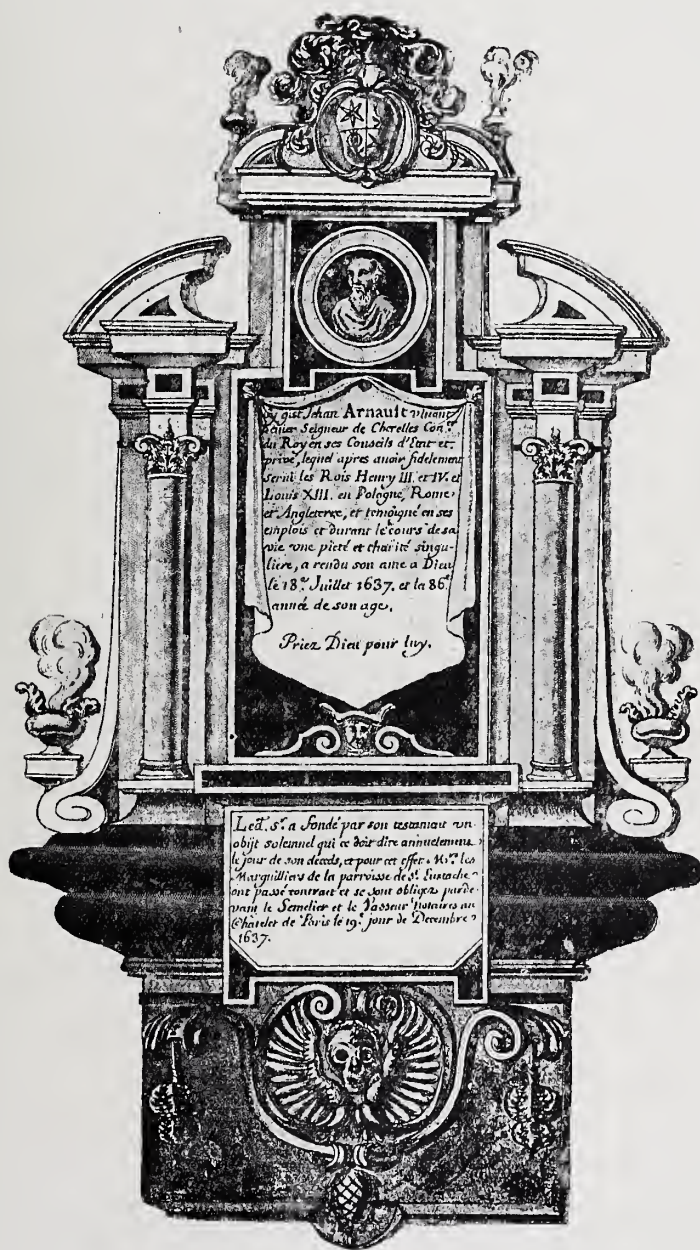 Cy gist Jehan Arnault vivant
Seigneur de Cherelles Con.er
du Roy en ses Conseils d'Estat et
privé, lequel apres avoir fidelement
servi les Rois Henry III. et IV. et
Louis XIII. en Pologne, Rome
et Angleterre, et temoigné en ses
emplois et durant le cours de sa
vie une pieté et charité singu-
liere, a rendu son ame a Dieu
le 18.e Juillet 1637. et la 86.e
année de son age.
Priez Dieu pour luy.
Led. S.r a fondé par son testament un
obijt solemnel qui ce doit dire annuelement
le jour de son deceds, et pour cet effet M.rs les
Marguilliers de la parroisse de S.t Eustache
ont passé contract et se sont obligez parde-
vant le Semelier et le Vasseur Notaires au
Chatelet de Paris le 19.e jour de Decembre
1637.